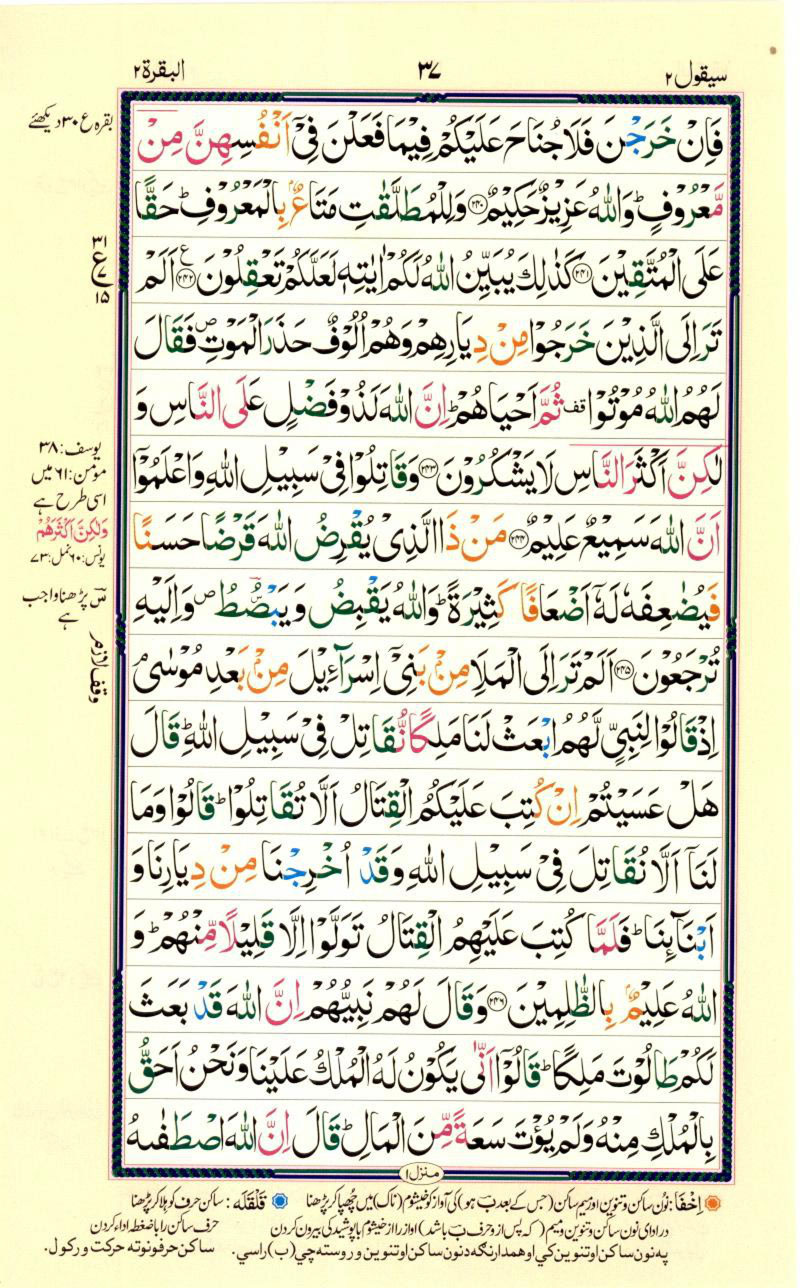 سيقول ٢ ٣٧ البقرة ٢
فَاِنْ خَرَجْنَ فَلَا جُنَاحَ عَلَيْكُمْ فِيْمَا فَعَلْنَ فِيْٓ اَنْفُسِهِنَّ مِنْ
مَّعْرُوْفٍ ؕ وَاللّٰهُ عَزِيْزٌ حَكِيْمٌ ﴿۲۴۰﴾ وَلِلْمُطَلَّقٰتِ مَتَاعٌۢ بِالْمَعْرُوْفِ ؕ حَقًّا
عَلَى الْمُتَّقِيْنَ ﴿۲۴۱﴾ كَذٰلِكَ يُبَيِّنُ اللّٰهُ لَكُمْ اٰيٰتِهٖ لَعَلَّكُمْ تَعْقِلُوْنَ ﴿۲۴۲﴾ ع اَلَمْ
تَرَ اِلَى الَّذِيْنَ خَرَجُوْا مِنْ دِيَارِهِمْ وَهُمْ اُلُوْفٌ حَذَرَ الْمَوْتِ ص فَقَالَ
لَهُمُ اللّٰهُ مُوْتُوْا قف ثُمَّ اَحْيَاهُمْ ؕ اِنَّ اللّٰهَ لَذُوْ فَضْلٍ عَلَى النَّاسِ وَ
لٰكِنَّ اَكْثَرَ النَّاسِ لَا يَشْكُرُوْنَ ﴿۲۴۳﴾ وَقَاتِلُوْا فِيْ سَبِيْلِ اللّٰهِ وَاعْلَمُوْٓا
اَنَّ اللّٰهَ سَمِيْعٌ عَلِيْمٌ ﴿۲۴۴﴾ مَنْ ذَا الَّذِيْ يُقْرِضُ اللّٰهَ قَرْضًا حَسَنًا
فَيُضٰعِفَهٗ لَهٗٓ اَضْعَافًا كَثِيْرَةً ؕ وَاللّٰهُ يَقْبِضُ وَيَبْصُۜطُ ص وَاِلَيْهِ
تُرْجَعُوْنَ ﴿۲۴۵﴾ اَلَمْ تَرَ اِلَى الْمَلَاِ مِنْۢ بَنِيْٓ اِسْرَآءِيْلَ مِنْۢ بَعْدِ مُوْسٰى ۘ
اِذْ قَالُوْا لِنَبِيٍّ لَّهُمُ ابْعَثْ لَنَا مَلِكًا نُّقَاتِلْ فِيْ سَبِيْلِ اللّٰهِ ؕ قَالَ
هَلْ عَسَيْتُمْ اِنْ كُتِبَ عَلَيْكُمُ الْقِتَالُ اَلَّا تُقَاتِلُوْا ؕ قَالُوْا وَمَا
لَنَآ اَلَّا نُقَاتِلَ فِيْ سَبِيْلِ اللّٰهِ وَقَدْ اُخْرِجْنَا مِنْ دِيَارِنَا وَ
اَبْنَآئِنَا ؕ فَلَمَّا كُتِبَ عَلَيْهِمُ الْقِتَالُ تَوَلَّوْا اِلَّا قَلِيْلًا مِّنْهُمْ ؕ وَ
اللّٰهُ عَلِيْمٌۢ بِالظّٰلِمِيْنَ ﴿۲۴۶﴾ وَقَالَ لَهُمْ نَبِيُّهُمْ اِنَّ اللّٰهَ قَدْ بَعَثَ
لَكُمْ طَالُوْتَ مَلِكًا ؕ قَالُوْٓا اَنّٰى يَكُوْنُ لَهُ الْمُلْكُ عَلَيْنَا وَنَحْنُ اَحَقُّ
بِالْمُلْكِ مِنْهُ وَلَمْ يُؤْتَ سَعَةً مِّنَ الْمَالِ ؕ قَالَ اِنَّ اللّٰهَ اصْطَفٰىهُ
منزل ۱
بقرہ ع ۳۰ دیکھئے
۳۱
ع ۷
۱۵
یوسف: ۳۸
مؤمن: ۶۱ میں
اسی طرح ہے
وَلٰكِنَّ اَكْثَرَهُمْ
یونس: ۶۰ نمل: ۷۳
سۜ پڑھنا واجب
ہے
وقف لازم
اِخْفَا: نون ساکن و تنوین اور میم ساکن (جس کے بعد ب ہو) کی آواز کو خیشوم (ناک) میں چھپا کر پڑھنا قَلْقَلَہ: ساکن حرف کو ہلا کر پڑھنا
در ادای نون ساکن و تنوین و میم (که پس از و حرف ب باشد) آواز را از خیشوم با پوشیدگی بیرون کردن حرف ساکن را با ضغطه ادا کردن
په نون ساکن او تنوین کي او همدارنګه د نون ساکن او تنوین و روسته چي (ب) راسي. ساکن حرفونو ته حرکت ورکول.